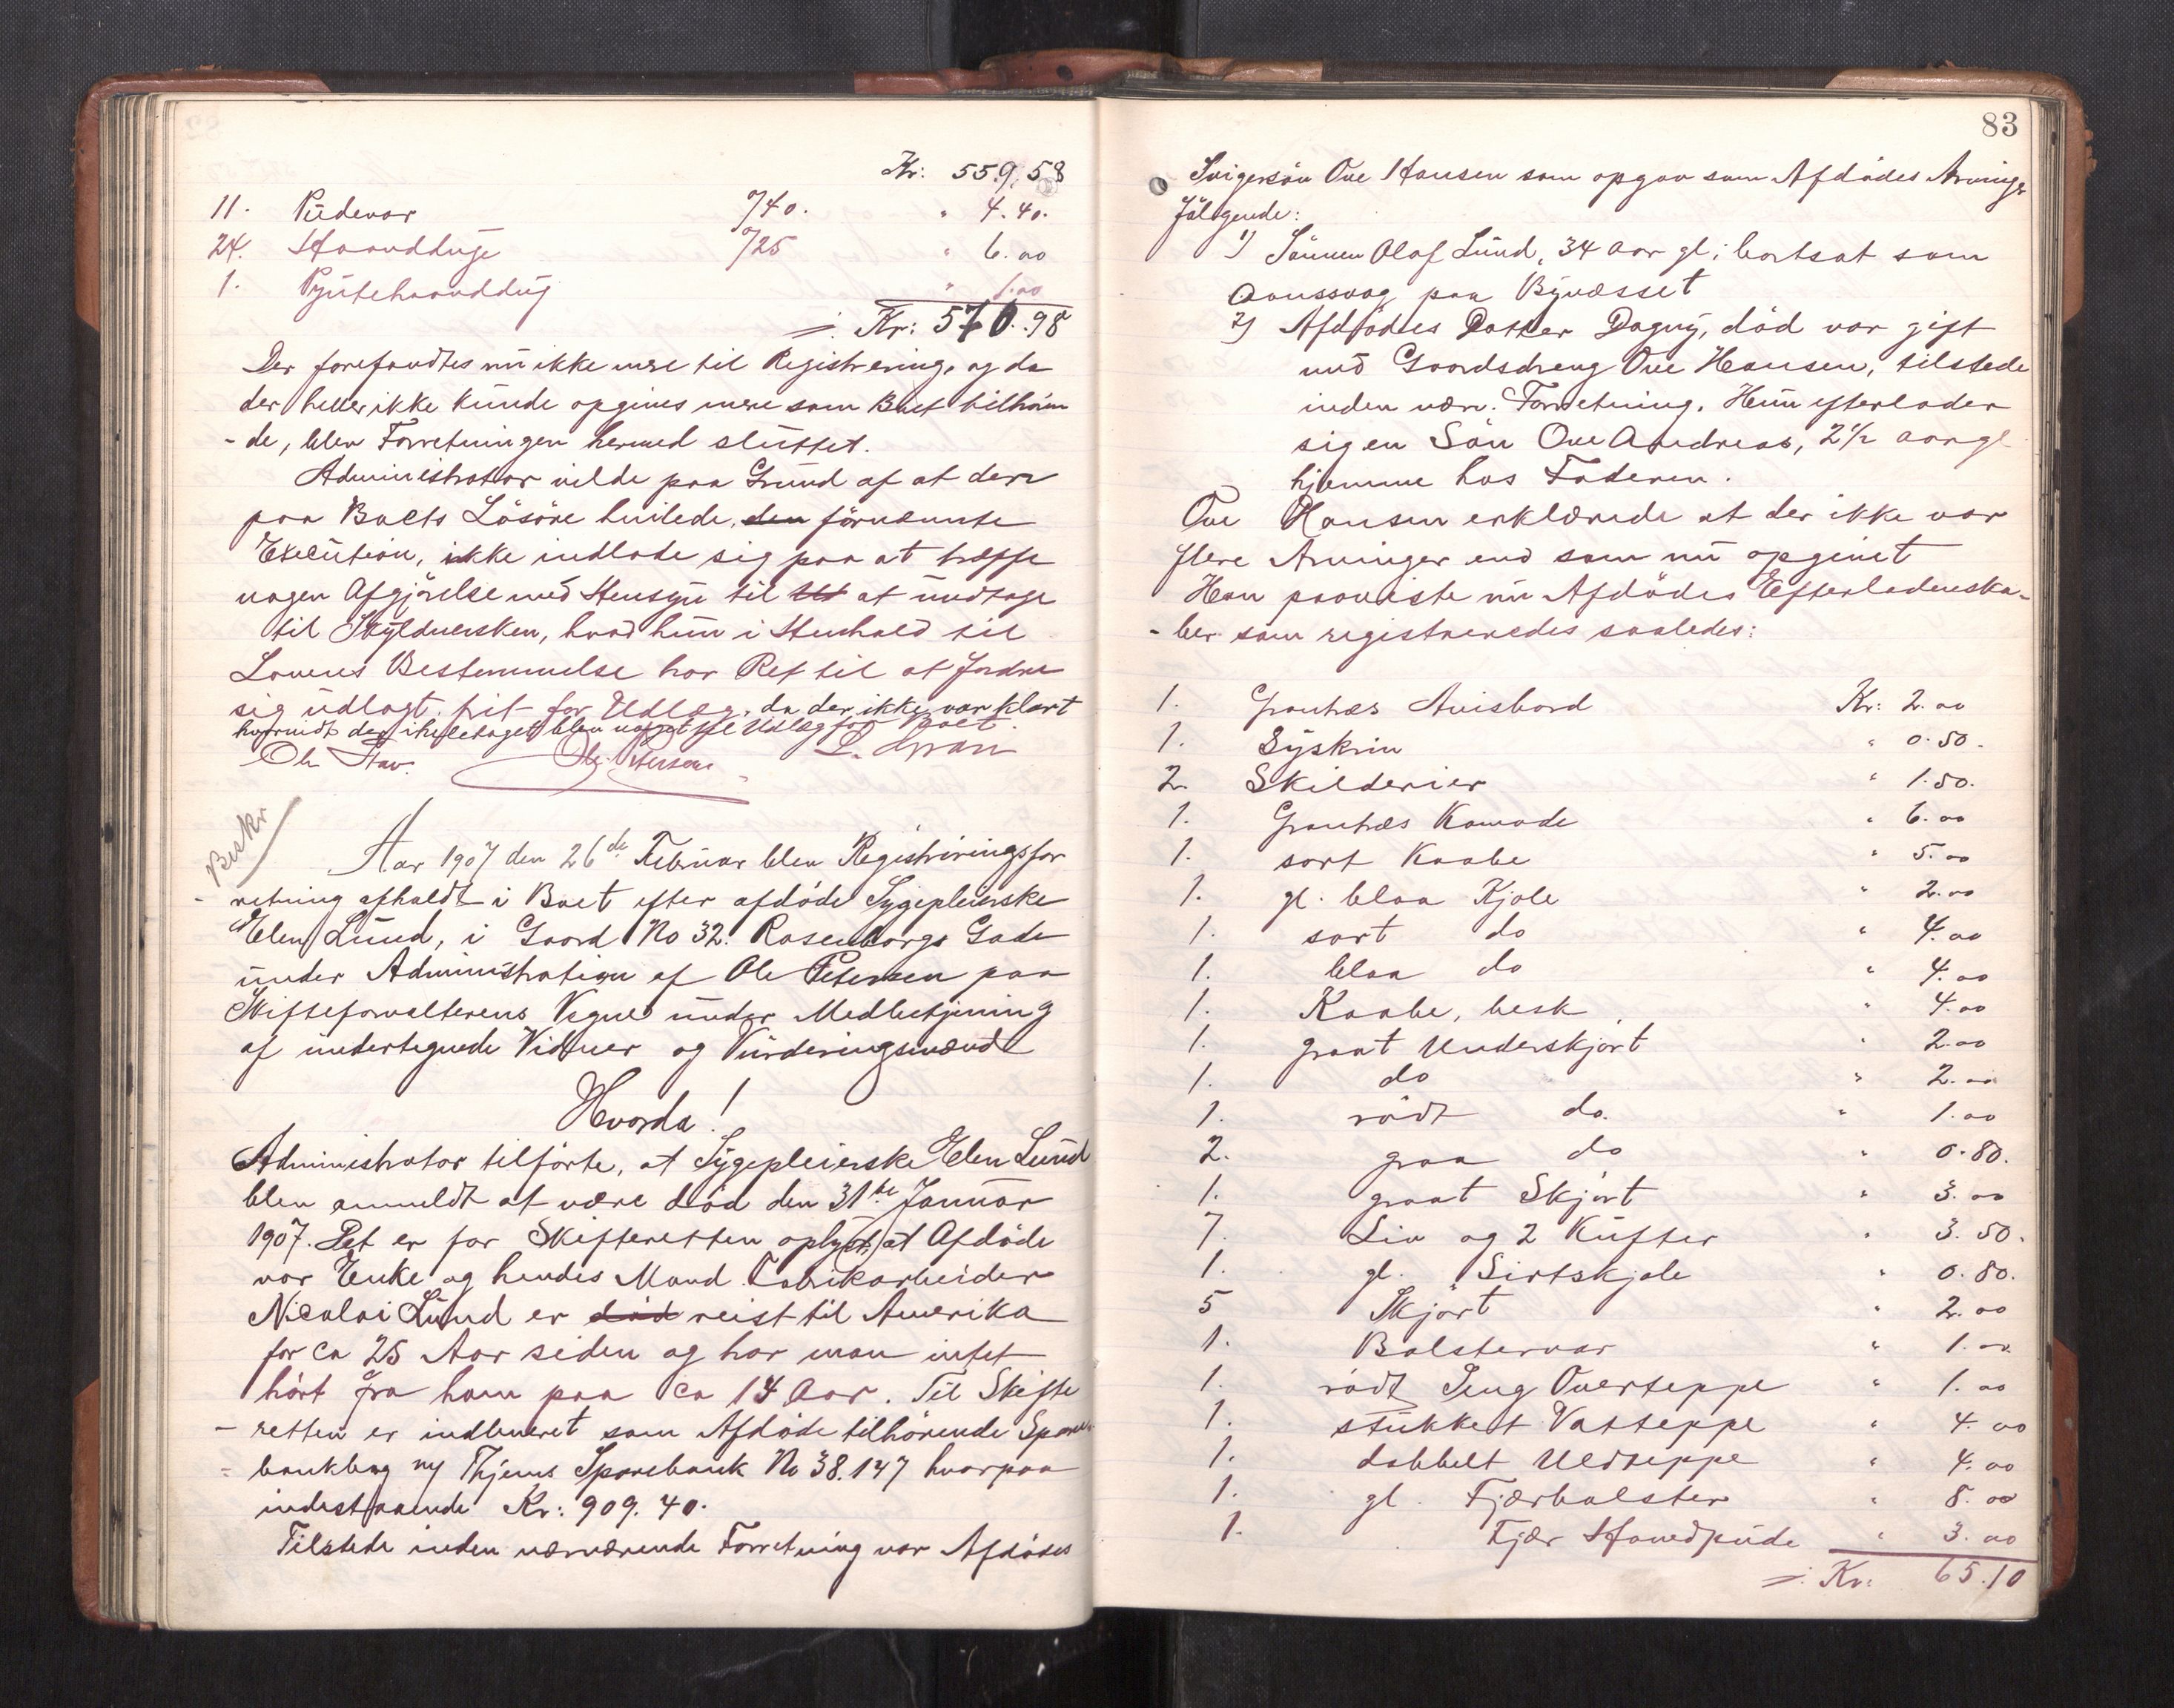 Kr: 559.58
11. Pudevar /40. " 4.40.
24. Haandduge /25 " 6.00
1. Pyntehaanddug " 1.00
=: Kr: 570.98
Der forefandtes nu ikke mere til Registrering, og da
der heller ikke kunde opgives mere som Boet tilhøren
-de, blev Forretningen hermed sluttet.
Administrator vilde paa Grund af at der
paa Boets Løsøre hvilede, den førnævnte
Execution, ikke indlade sig paa at træffe
nogen Afgjørelse med Hensyn til at undtage
til Skyldnersken, hvad hun i Henhold til
Lovens Bestemmelse har Ret til at fordre
sig udlagt frit for Udlæg, da der ikke var klart
hvorvidt der ikke blev noget Udlæg for Boet.
Ole Petersen
Beskr
Aar 1907 den 26de Februar blev Registreringsfor
-retning afholdt i Boet efter afdøde Sygepleierske
Elen Lund, i Gaard No 32. Rosenborgs Gade
under Administration af Ole Petersen paa
Skifteforvalterens Vegne under Medbetjening
af undertegnede Vidner og Vurderingsmænd
Hvorda!
Administrator tilførte, at Sygepleierske Elen Lund
blev anmeldt at være død den 31te Januar
1907. Det er for Skifteretten oplyst, at Afdøde
var Enke og hendes Mand Fabrikarbeider
Nicolai Lund er død reist til Amerika
for ca 25 Aar siden og har man intet
hørt fra ham paa ca 14 Aar. Til Skifte
-retten er indleveret som Afdøde tilhørende Spare-
-bankbog Thjems Sparebank No 38.147 hvorpaa
indestaaende Kr: 909.40.
Tilstede inden nærværende Forretning var Afdødes
83
Svigersøn Ove Hansen som opgav som Afdødes Arvinger
følgende:
1) Sønnen Olaf Lund, 34 Aar gl; bortsat som
paa Byneset
2) Afdødes Datter Dagny, død var gift
med Gaardsdreng Ove Hansen, tilstede
inden nærv. Forretning. Hun efterlader
sig en Søn Ove Andreas, 2½ aar gl
hjemme hos Faderen.
Ove Hansen erklærede at der ikke var
flere Arvinger end som nu opgivet
Han paaviste nu Afdødes Efterladenska-
-ber som registreredes saaledes:
1. Grantræs Avisbord Kr: 2.00
1. Syskrin " 0.50.
2 Skilderier " 1.50.
1. Grantræs Komode " 6.00
1. sort Kaabe " 5.00
1. gl. blaa Kjole " 2.00
1. sort do " 4.00
1. blaa do " 4.00
1. Kaabe, besk " 4.00
1. graat Underskjørt " 2.00
1. do " 2.00
1. rødt do. " 1.00
2. graa do " 0.80.
1. graat Skjørt " 3.00
7. Liv og 2 Kufter " 3.50.
1. gl. Sirtskjole " 0.80.
5 Skjørt " 2.00
1. Bolstervar " 1.00
1. rødt Seng Overteppe " 1.00
1. stukket Vatteppe " 4.00
1. dobbelt Uldteppe " 4.00
1. gl. Fjærbolster " 8.00
1. Fjær Hovedpude " 3.00
=: Kr: 65.10